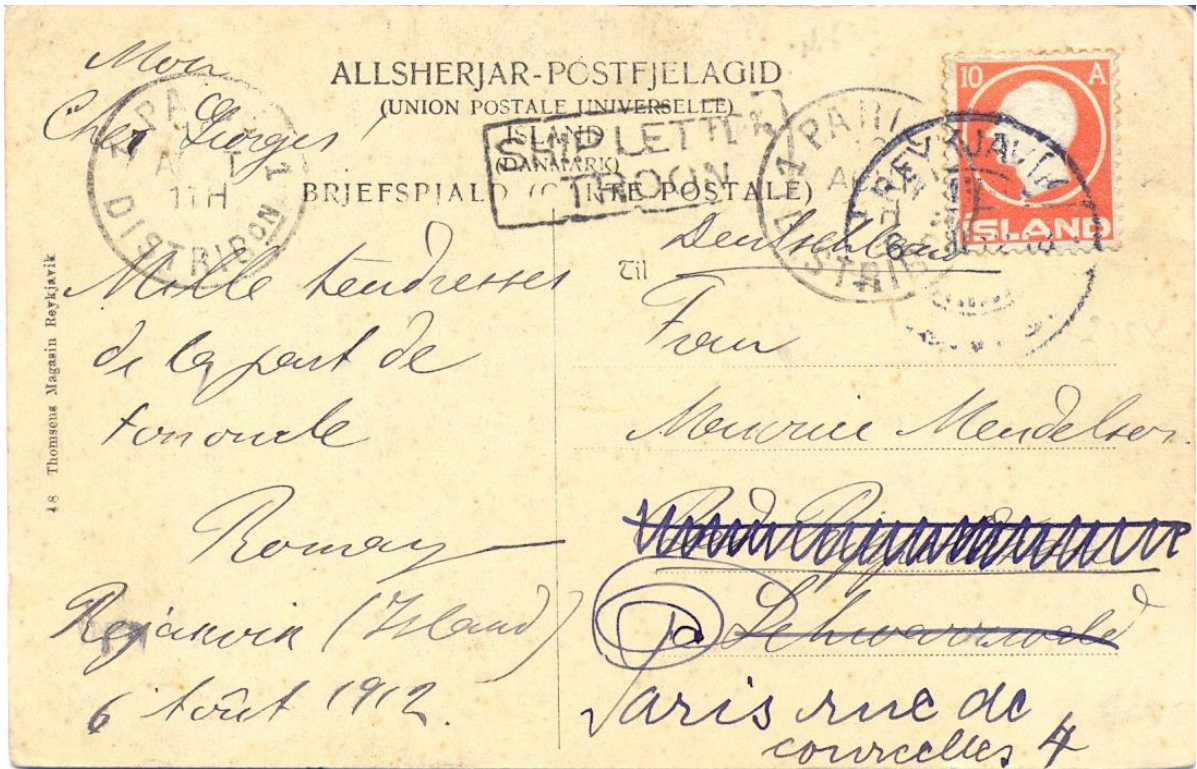 ALLSHERJAR-PÓSTFJELAGID
(UNION POSTALE UNIVERSELLE)
ISLAND
(DANMARK)
BRJEFSPJALD (CARTE POSTALE)
SHIP LETTER
TROON
10 A
ISLAND
REYKJAVIK
PARIS
DISTRIBON
11H
PARI
DISTRIB
48 Thomsens Magasin Reykjavik
Mon
Cher Georges
Mille tendresses
de la part de
ton oncle
Romay
Rejákvik (Island)
6 Août 1912.
Til
Deutschland
Frau
Maurice Mendelson
Schwarzwald
Paris rue de
courcelles 4